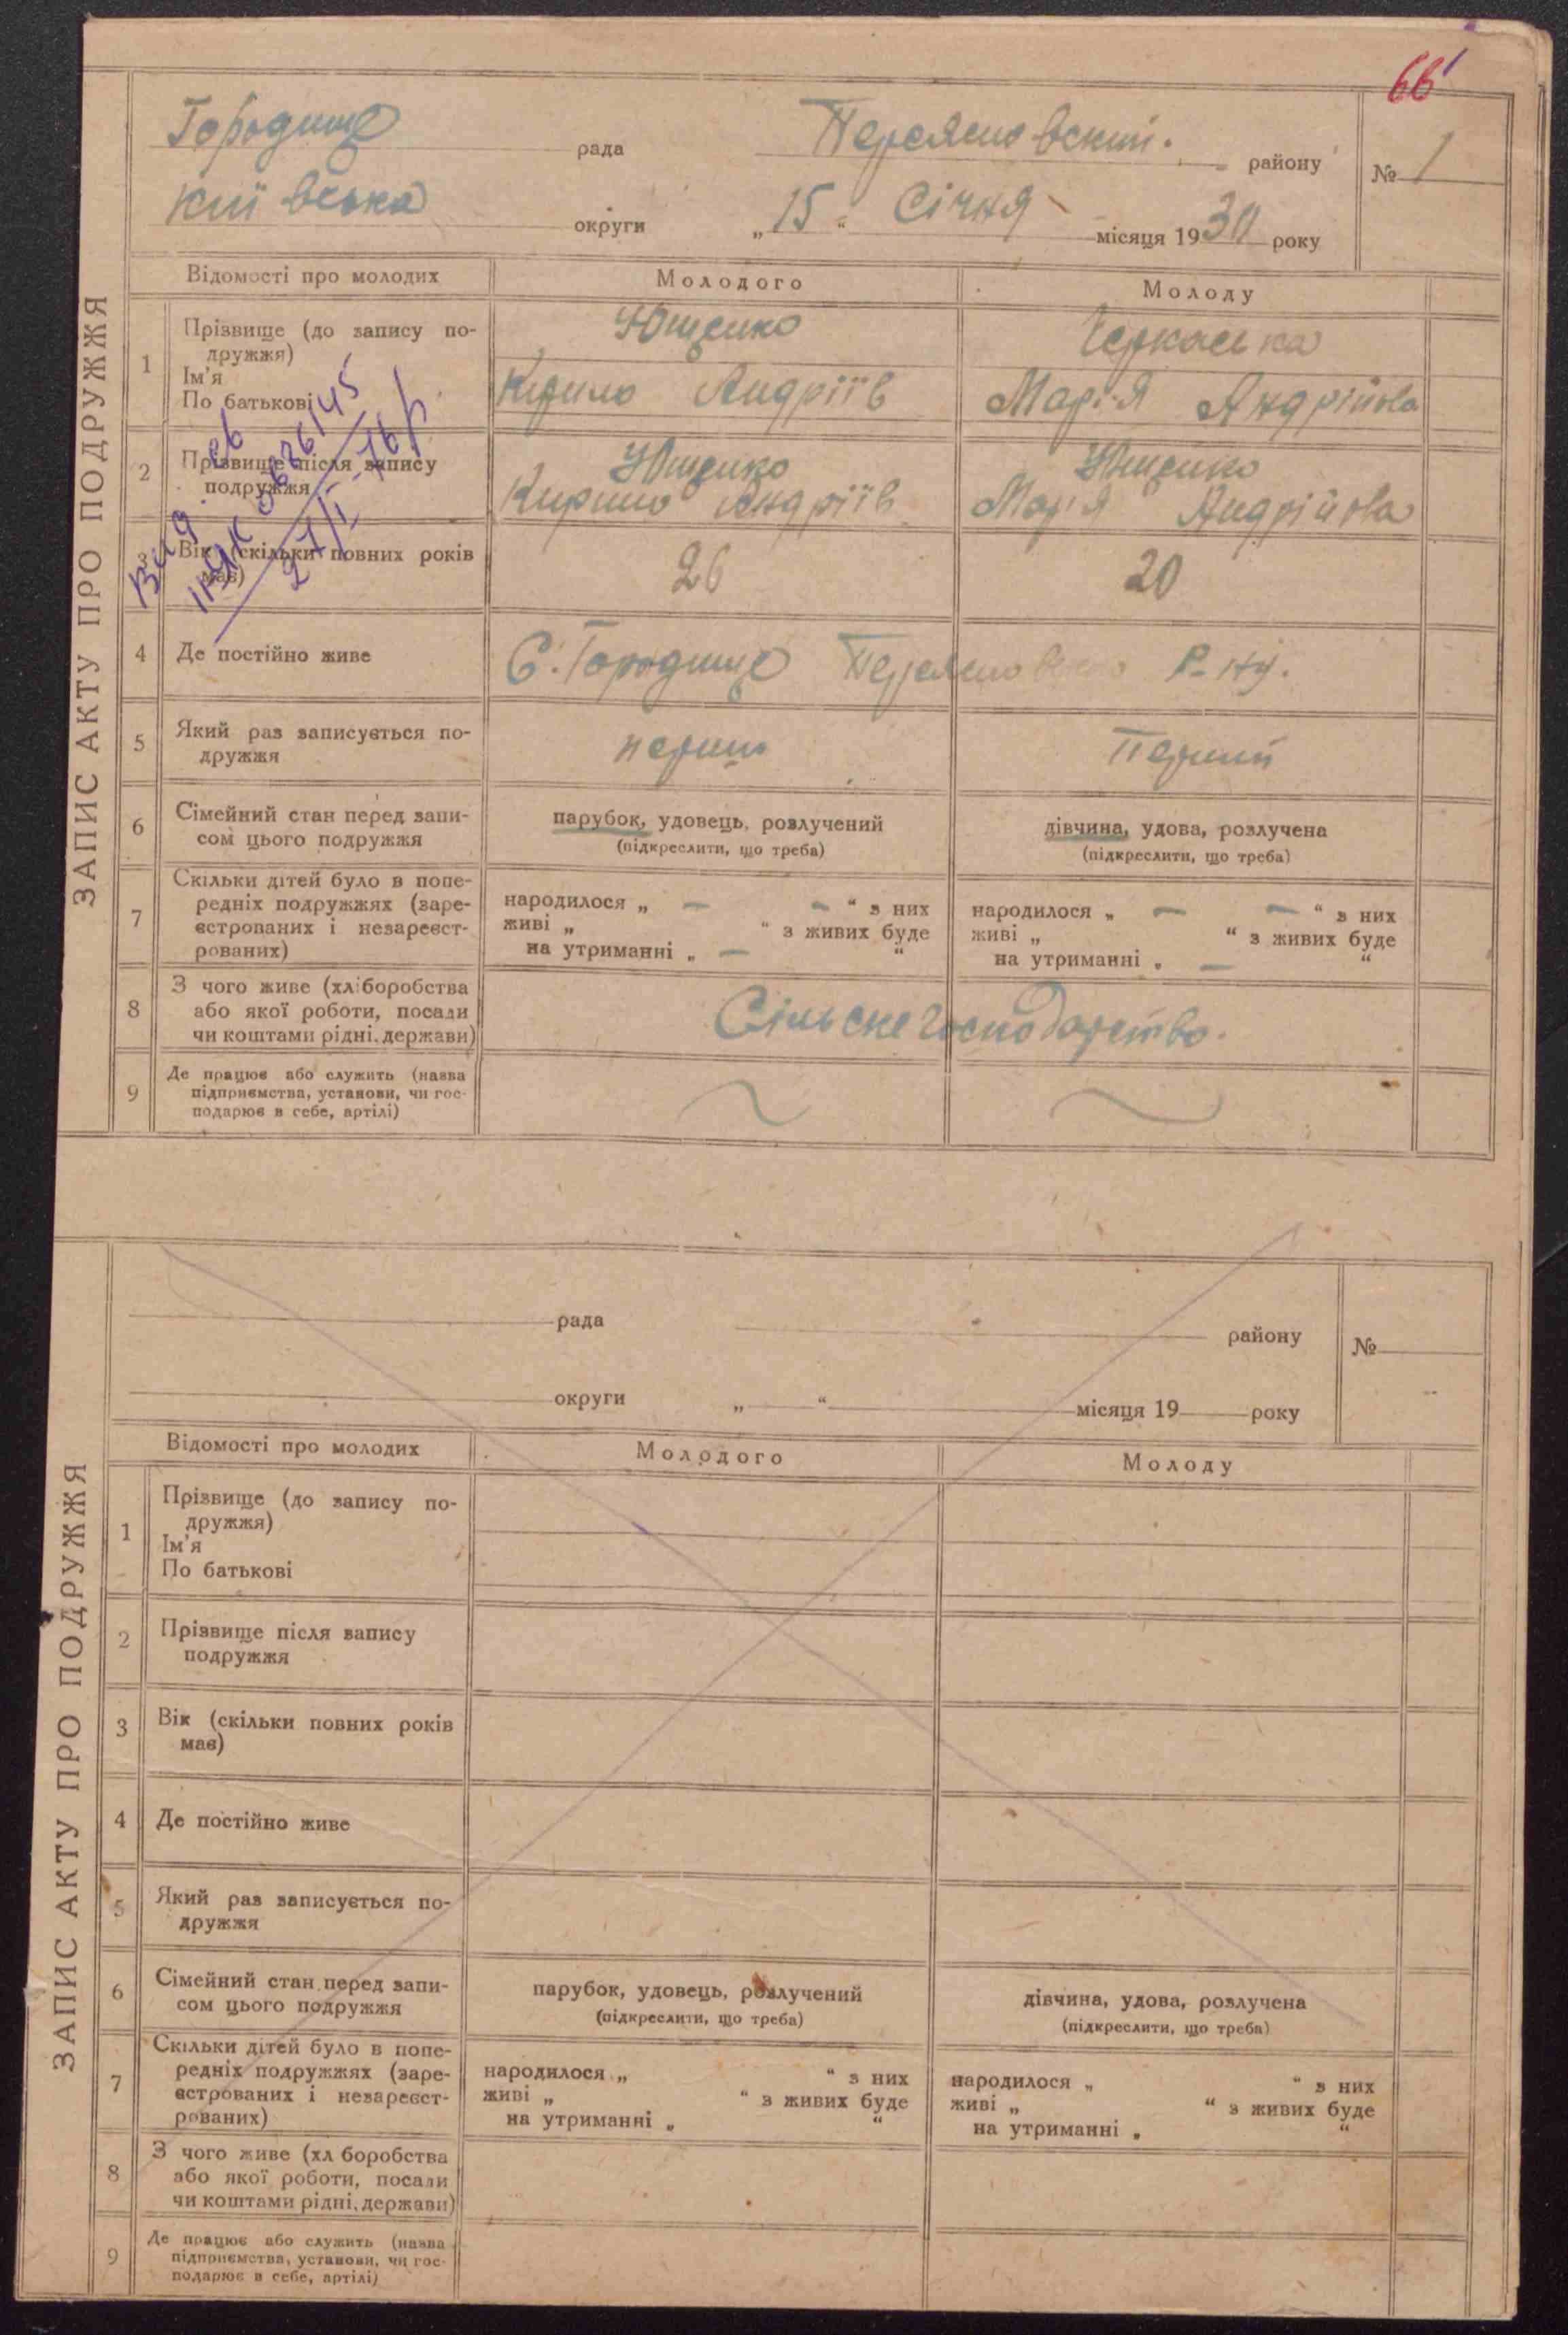 66
Городище рада Переяславский району № 1
Київська округи „15“ Січня місяця 1930 року
ЗАПИС АКТУ ПРО ПОДРУЖЖЯ
Відомості про молодих Молодого Молоду
1 Прізвище (до запису по-
дружжя)
Ім'я
По батькові
Ющенко
Кирило Андріїв
Черкаська
Марія Андрійова
2 Прізвище після запису
подружжя
Ющенко
Кирило Андріїв
Ющенко
Марія Андрійова
3 Вік (скільки повних років
має)
26 20
Вид. св.
27/I-76 р
4 Де постійно живе С. Городище Р-ну.
5 Який раз записується по-
дружжя
перший Перший
6 Сімейний стан перед запи-
сом цього подружжя
парубок, удовець, розлучений
(підкреслити, що треба)
дівчина, удова, розлучена
(підкреслити, що треба)
7 Скільки дітей було в попе-
редніх подружжях (заре-
єстрованих і незареєст-
рованих)
народилося „ — — “ з них
живі „ “ з живих буде
на утриманні „ — “
народилося „ — — “ з них
живі „ “ з живих буде
на утриманні „ — “
8 З чого живе (хліборобства
або якої роботи, посади
чи коштами рідні, держави)
Сільске господарство.
9 Де працює або служить (назва
підприємства, установи, чи гос-
подарює в себе, артілі)
рада району №
округи „ “ місяця 19 року
ЗАПИС АКТУ ПРО ПОДРУЖЖЯ
Відомості про молодих Молодого Молоду
1 Прізвище (до запису по-
дружжя)
Ім'я
По батькові
2 Прізвище після запису
подружжя
3 Вік (скільки повних років
має)
4 Де постійно живе
5 Який раз записується по-
дружжя
6 Сімейний стан перед запи-
сом цього подружжя
парубок, удовець, розлучений
(підкреслити, що треба)
дівчина, удова, розлучена
(підкреслити, що треба)
7 Скільки дітей було в попе-
редніх подружжях (заре-
єстрованих і незареєст-
рованих)
народилося „ “ з них
живі „ “ з живих буде
на утриманні „ “
народилося „ “ з них
живі „ “ з живих буде
на утриманні „ “
8 З чого живе (хл боробства
або якої роботи, посади
чи коштами рідні, держави)
9 Де працює або служить (назва
підприємства, установи, чи гос-
подарює в себе, артілі)